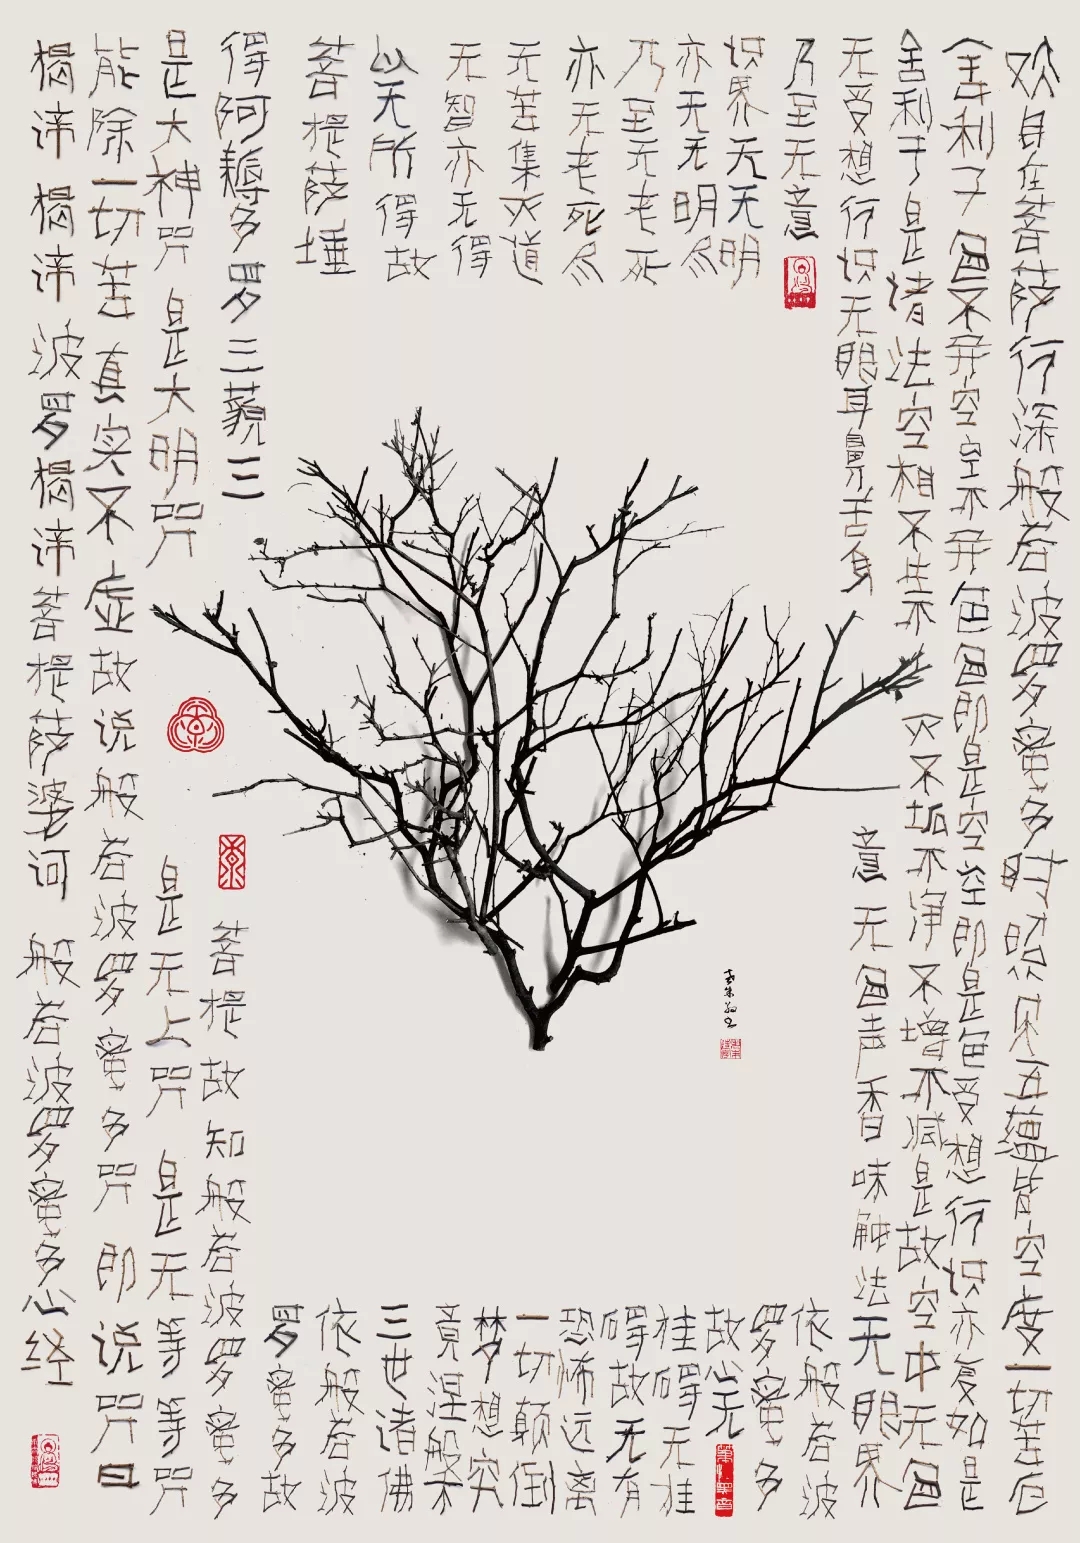 观自在菩萨行深般若波罗蜜多时照见五蕴皆空度一切苦厄
舍利子色不异空空不异色色即是空空即是色受想行识亦复如是
舍利子是诸法空相不生不灭不垢不净不增不减是故空中无色
无受想行识无眼耳鼻舌身
意无色声香味触法无眼界
乃至无意
识界无无明
亦无无明尽
乃至无老死
亦无老死尽
无苦集灭道
无智亦无得
以无所得故
菩提萨埵
依般若波
罗蜜多
故心无
挂碍无挂
碍故无有
恐怖远离
一切颠倒
梦想究
竟涅槃
三世诸佛
依般若波
罗蜜多故
得阿耨多罗三藐三
菩提故知般若波罗蜜多
是大神咒是大明咒
是无上咒是无等等咒
能除一切苦真实不虚故说般若波罗蜜多咒即说咒曰
揭谛揭谛波罗揭谛菩提萨婆诃
般若波罗蜜多心经